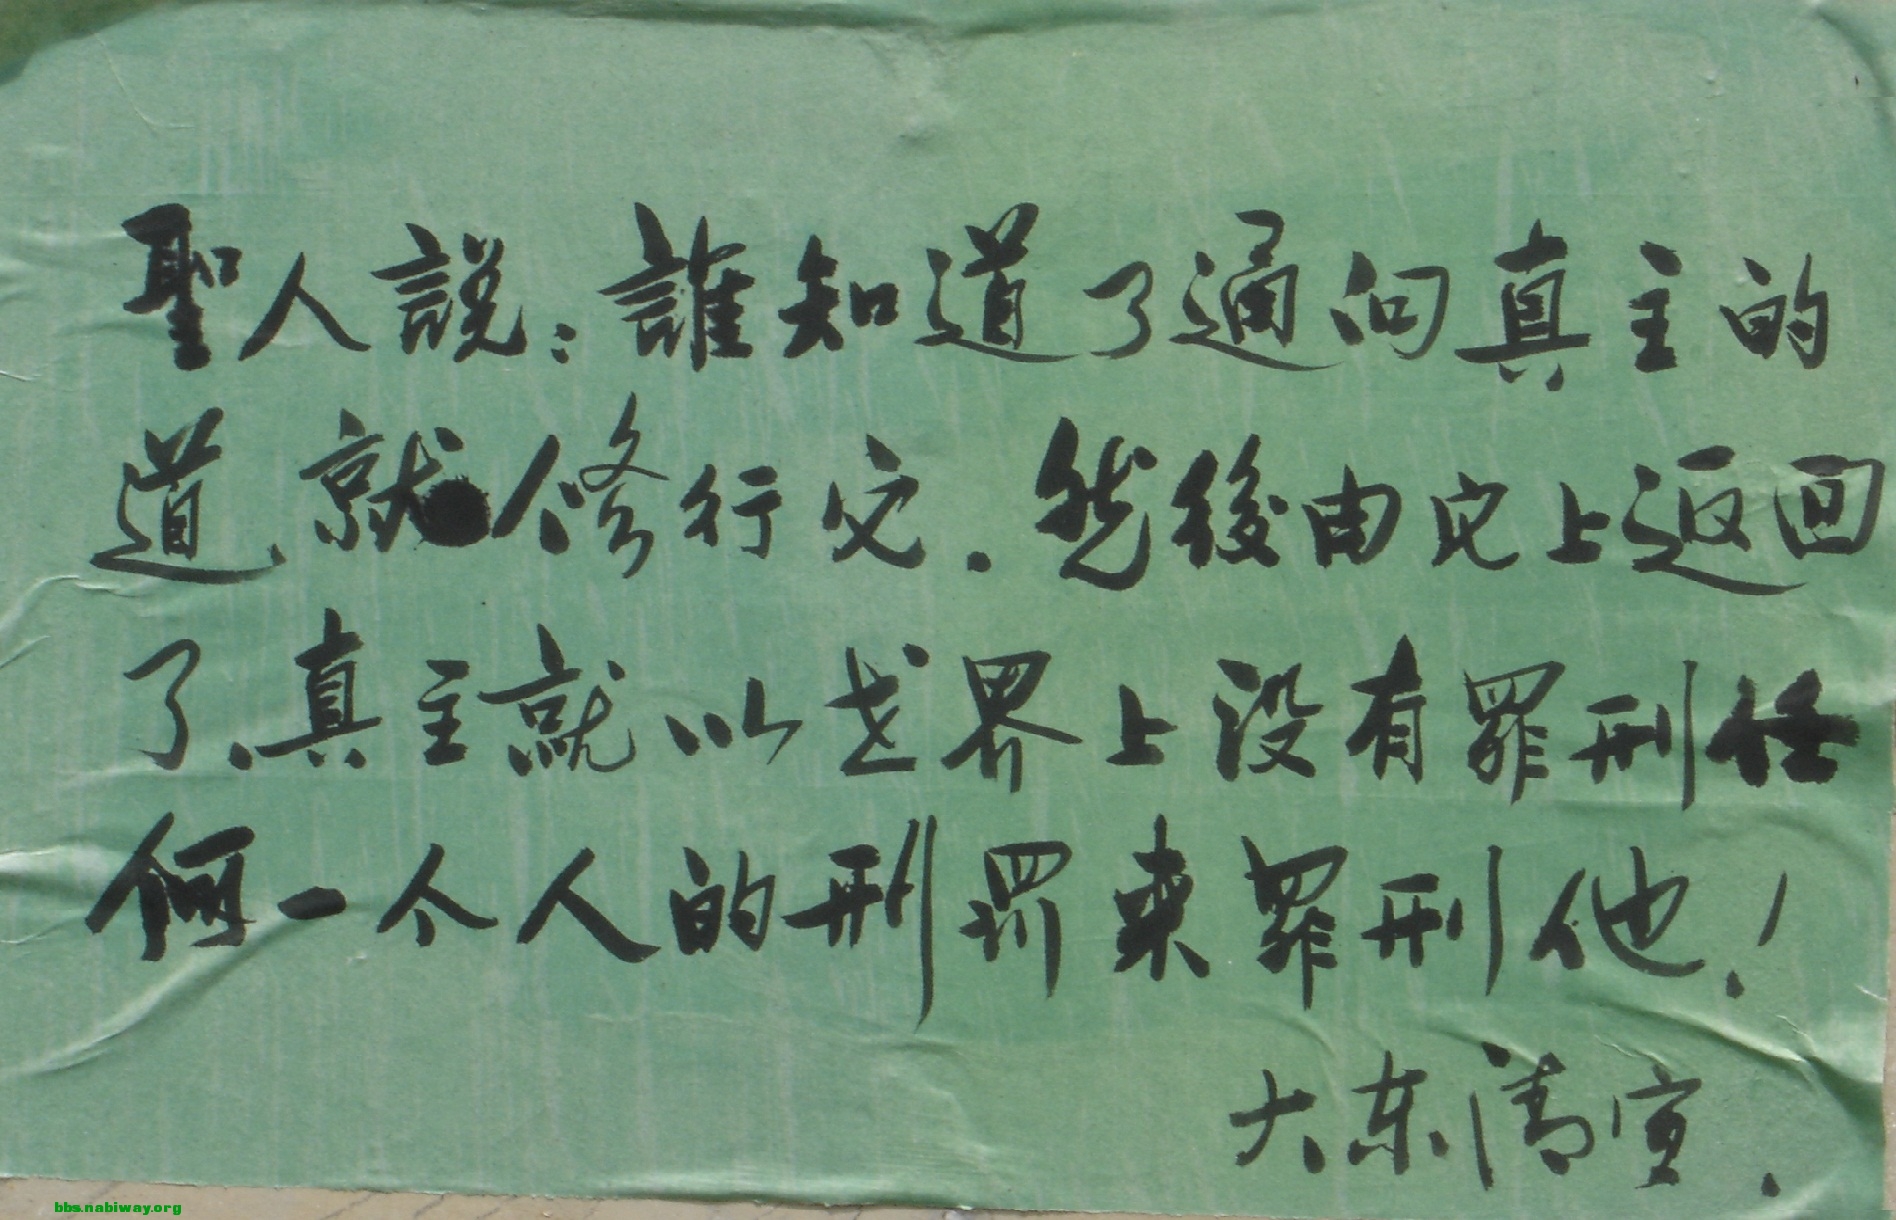 聖人說：誰知道了通向真主的
道、就人修行它．然後由它上返回
了、真主就以世界上没有罪刑任
何一个人的刑罰来罪刑他！
大东清寺．
bbs.nabiway.org